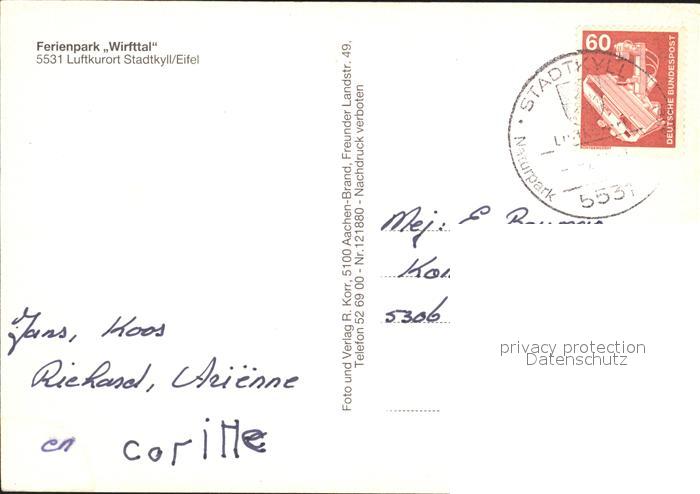 Ferienpark „Wirfttal“
5531 Luftkurort Stadtkyll/Eifel
Foto und Verlag R. Korr, 5100 Aachen-Brand, Freunder Landstr. 49,
Telefon 52 69 00 - Nr. 121880 - Nachdruck verboten
60
DEUTSCHE BUNDESPOST
STADTKYLL
Naturpark
5531
Mej: E
5306
privacy protection
Datenschutz
Jans, Koos
Richard, Ariënne
en Corine